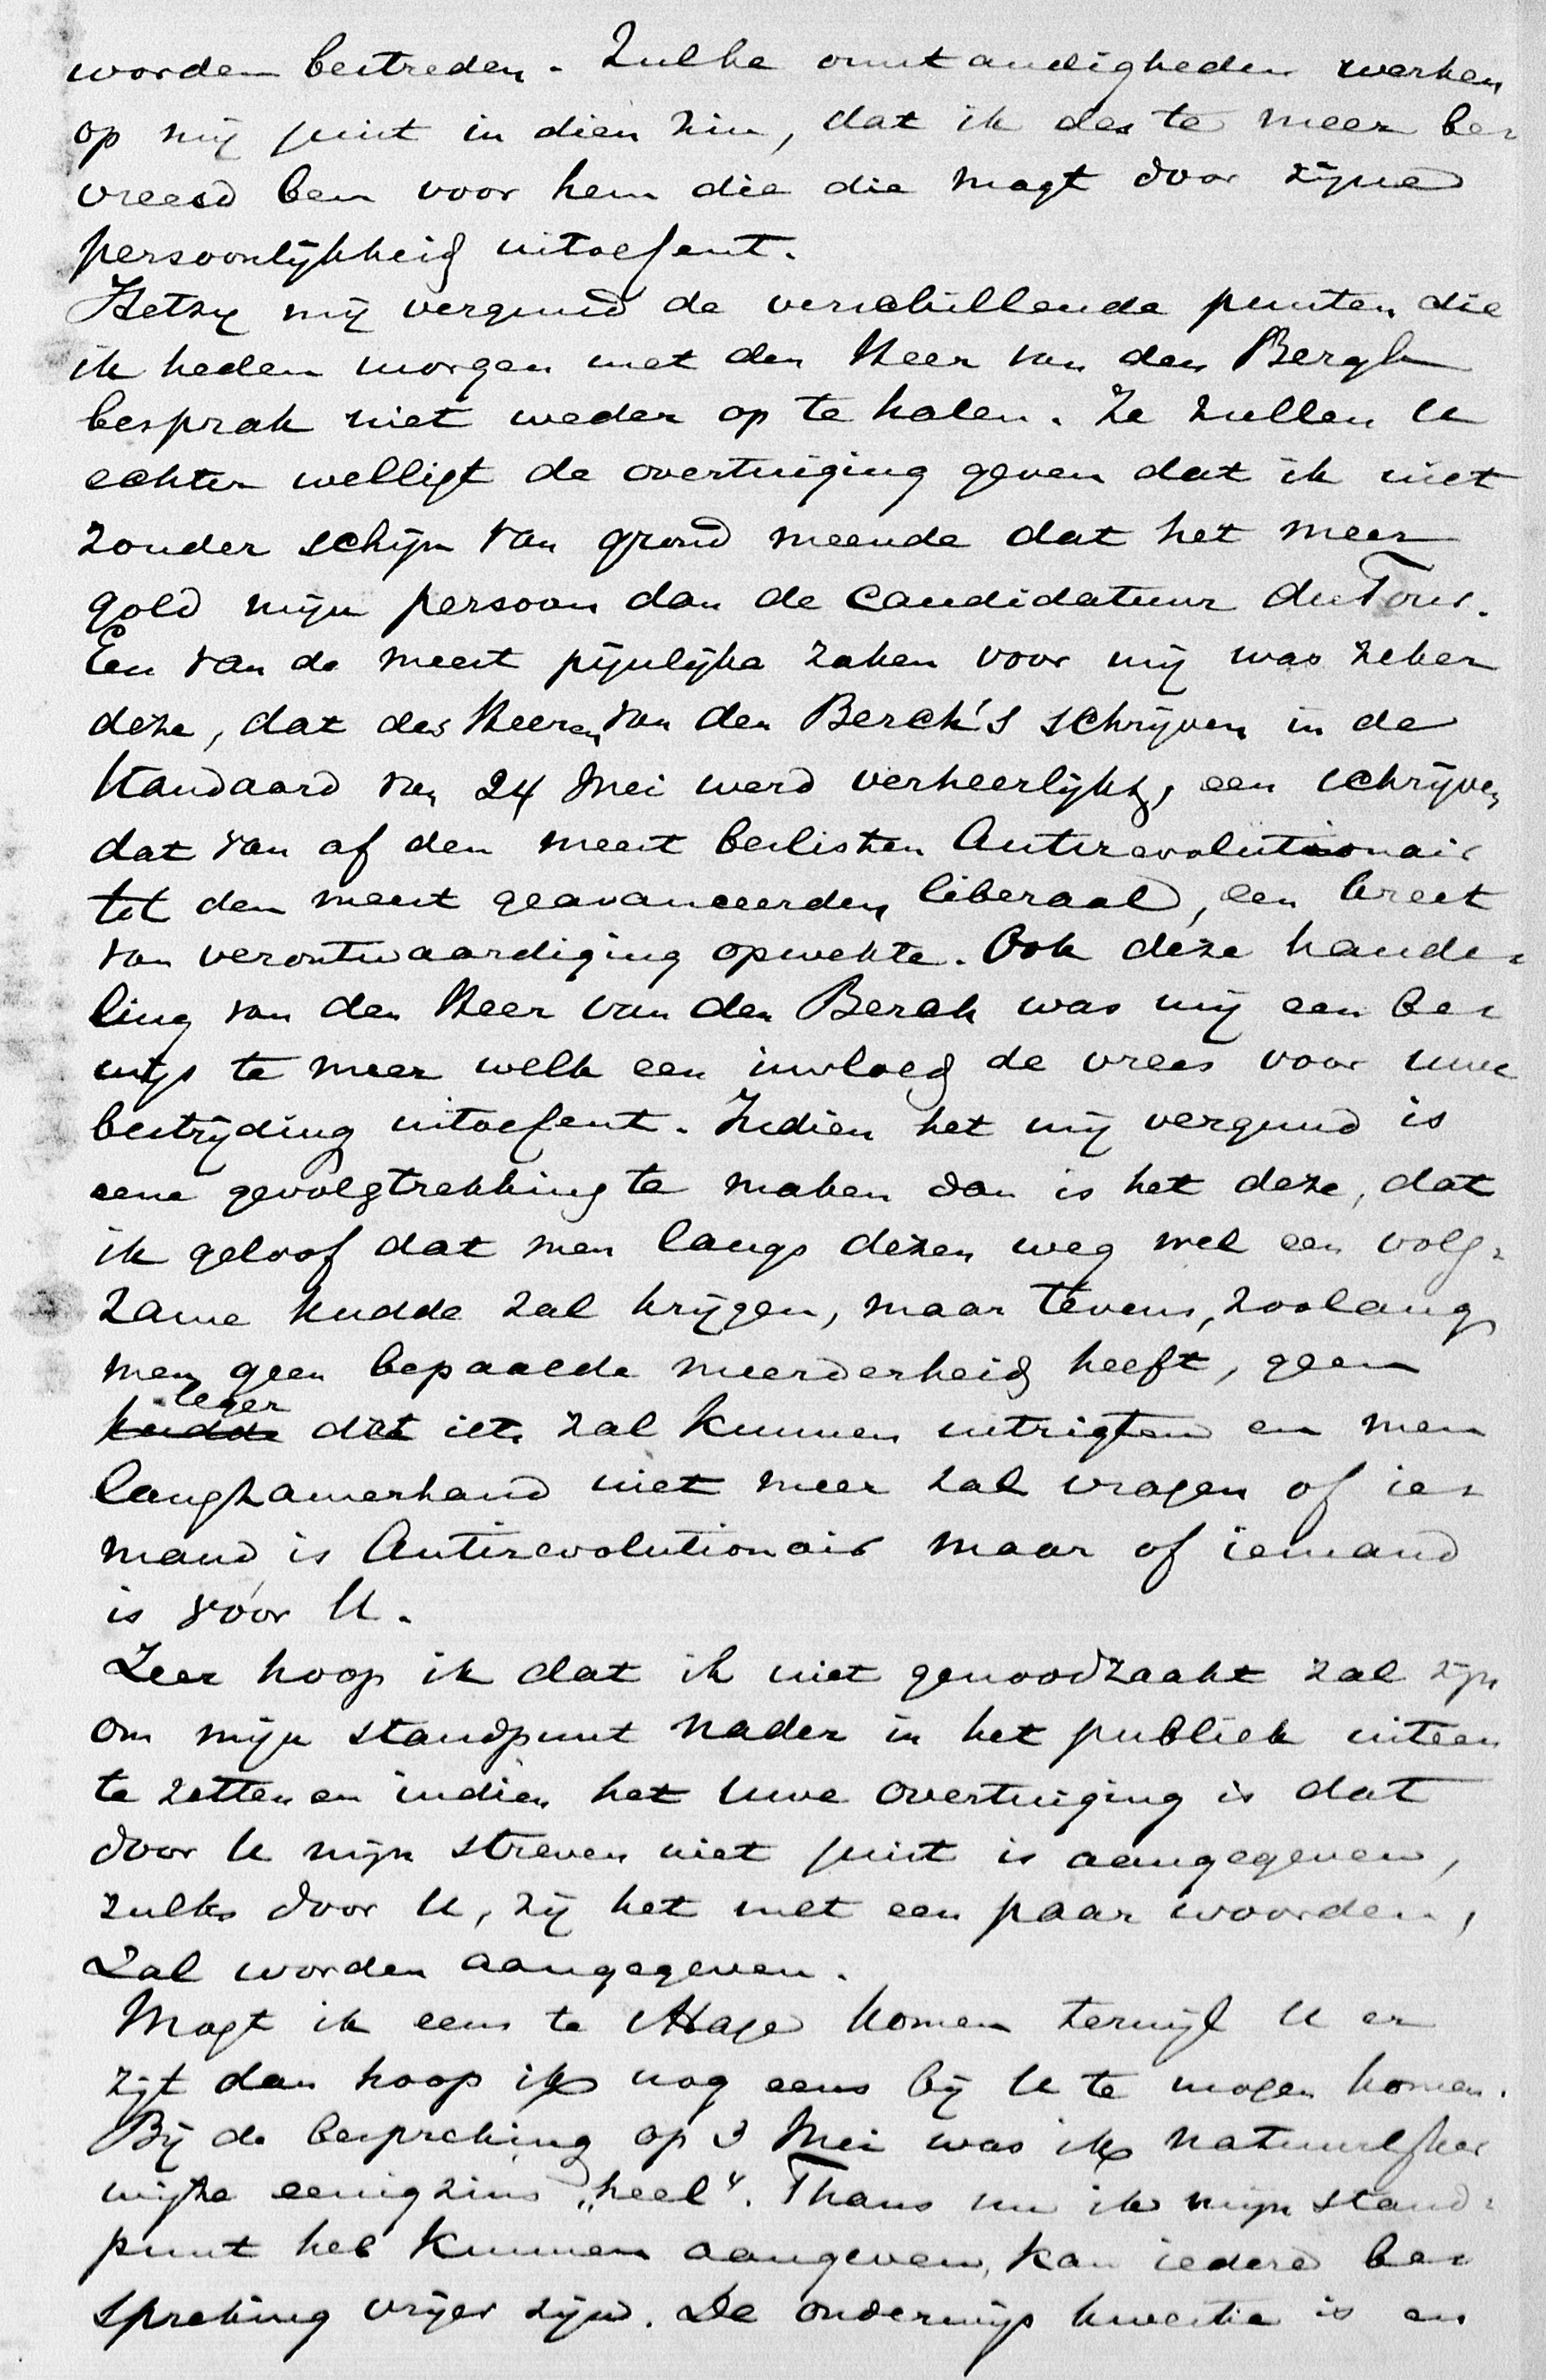 worden bestreden. Zulke omstandigheden werken
op mij juist in dien zin, dat ik des te meer be-
vreesd ben voor hem die die magt door zijne
persoonlijkheid uitoefent.
Het zij mij vergund de verschillende punten die
ik heden morgen met den Heer van den Bergh
besprak niet weder op te halen. Ze zullen U
echter welligt de overtuiging geven dat ik niet
zonder schijn van grond meende dat het meer
gold mijn persoon dan de candidatuur du Tour.
Een van de meest pijnlijke zaken voor mij was zeker
deze, dat des Heeren van den Berch's schrijven in de
Standaard van 24 Mei werd verheerlijkt, een schrijven
dat van af den meest beslisten Antirevolutionair
tot den meest geavanceerden liberaal, een kreet
van verontwaardiging opwekte. Ook deze hande-
ling van den Heer van den Berch was mij een be-
wijs te meer welk een invloed de vrees voor uwe
bestrijding uitoefent. Indien het mij vergund is
eene gevolgtrekking te maken dan is het deze, dat
ik geloof dat men langs dezen weg wel een volg-
zame kudde zal krijgen, maar tevens, zoolang
men geen bepaalde meerderheid heeft, geen
leger
kudde dat iets zal kunnen uitrigten en men
langzamerhand niet meer zal vragen of ie-
mand is Antirevolutionair maar of iemand
is vóór U.
Zeer hoop ik dat ik niet genoodzaakt zal zijn
om mijn standpunt nader in het publiek uiteen
te zetten en indien het Uwe overtuiging is dat
door U mijn streven niet juist is aangegeven,
zulks door U, zij het met een paar woorden,
zal worden aangegeven.
Mogt ik eens te Hage komen terwijl U er
zijt dan hoop ik nog eens bij U te mogen komen.
Bij de bespreking op 3 Mei was ik natuurlijker
wijze eenigzins „heel". Thans nu ik mijn stand-
punt heb kunnen aangeven, kan iedere be-
spreking vrijer zijn. De onderwijs kwestie is en